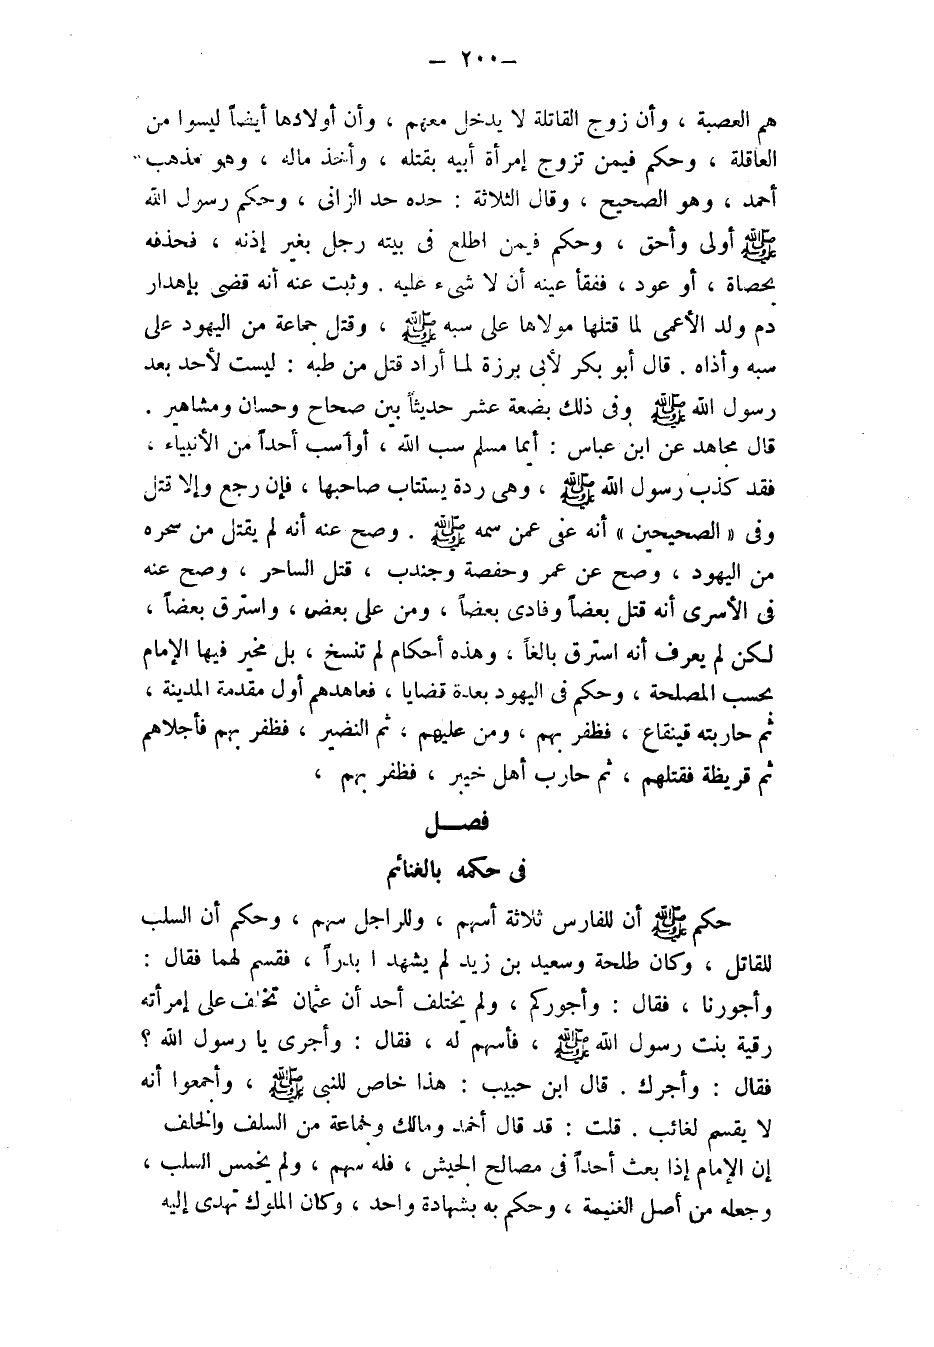 — ٢٠٠ —
هم العصبة ، وأن زوج القاتلة لا يدخل معهم ، وأن أولادها أيضاً ليسوا من
العاقلة ، وحكم فيمن تزوج إمرأة أبيه بقتله ، وأخذ ماله ، وهو مذهب
أحمد ، وهو الصحيح ، وقال الثلاثة : حده حد الزانى ، وحكم رسول الله
ﷺ أولى وأحق ، وحكم فيمن اطلع فى بيته رجل بغير إذنه ، فحذفه
بحصاة ، أو عود ، ففقأ عينه أن لا شىء عليه . وثبت عنه أنه قضى بإهدار
دم ولد الأعمى لما قتلها مولاها على سبه ﷺ ، وقتل جماعة من اليهود على
سبه وأذاه . قال أبو بكر لأبى برزة لما أراد قتل من طبه : ليست لأحد بعد
رسول الله ﷺ وفى ذلك بضعة عشر حديثاً بين صحاح وحسان ومشاهير .
قال مجاهد عن ابن عباس : أيما مسلم سب الله ، أوأسب أحداً من الأنبياء ،
فقد كذب رسول الله ﷺ ، وهى ردة يستتاب صاحبها ، فإن رجع وإلا قتل
وفى « الصحيحين » أنه عفى عمن سمه ﷺ . وصح عنه أنه لم يقتل من سحره
من اليهود ، وصح عن عمر وحفصة وجندب ، قتل الساحر ، وصح عنه
فى الأسرى أنه قتل بعضاً وفادى بعضاً ، ومن على بعض ، واسترق بعضاً ،
لكن لم يعرف أنه استرق بالغاً ، وهذه أحكام لم تنسخ ، بل مخير فيها الإمام
بحسب المصلحة ، وحكم فى اليهود بعدة قضايا ، فعاهدهم أول مقدمة المدينة ،
ثم حاربته قينقاع ، فظفر بهم ، ومن عليهم ، ثم النضير ، فظفر بهم فأجلاهم
ثم قريظة فقتلهم ، ثم حارب أهل خيبر ، فظفر بهم ،
فصــل
فى حكمه بالغنائم
حكم ﷺ أن للفارس ثلاثة أسهم ، وللراجل سهم ، وحكم أن السلب
للقاتل ، وكان طلحة وسعيد بن زيد لم يشهد ا بدراً ، فقسم لهما فقال :
وأجورنا ، فقال : وأجوركم ، ولم يختلف أحد أن عثمان تخلف على إمرأته
رقية بنت رسول الله ﷺ ، فأسهم له ، فقال : وأجرى يا رسول الله ؟
فقال : وأجرك . قال ابن حبيب : هذا خاص للنبى ﷺ ، وأجمعوا أنه
لا يقسم لغائب . قلت : قد قال أحمد ومالك وجماعة من السلف والخلف
إن الإمام إذا بعث أحداً فى مصالح الجيش ، فله سهم ، ولم يخمس السلب ،
وجعله من أصل الغنيمة ، وحكم به بشهادة واحد ، وكان الملوك تهدى إليه